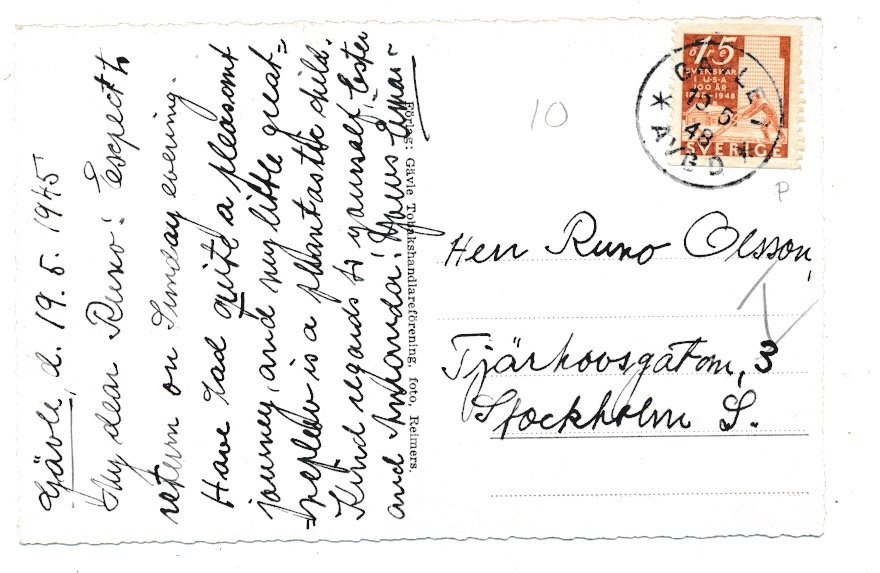 Gävle, d. 19. 5. 1945
My dear Runo! Expect to
return on Sunday evening.
Have had quite a pleasant
journey, and my little great=
=nephew is a phantastic child.
Kind regards to yourself, Ester
and Amanda! Yours Einar
Förlag: Gävle Tobakshandlareförening, foto, Reimers.
10
15
ÖRE
SVENSKAR
I U·S·A
100 ÅR
1948
SVERIGE
GÄVLE 1
5
48
* AVGD *
P
Herr Runo Olsson,
Tjärhovsgatan, 3
Stockholm S.